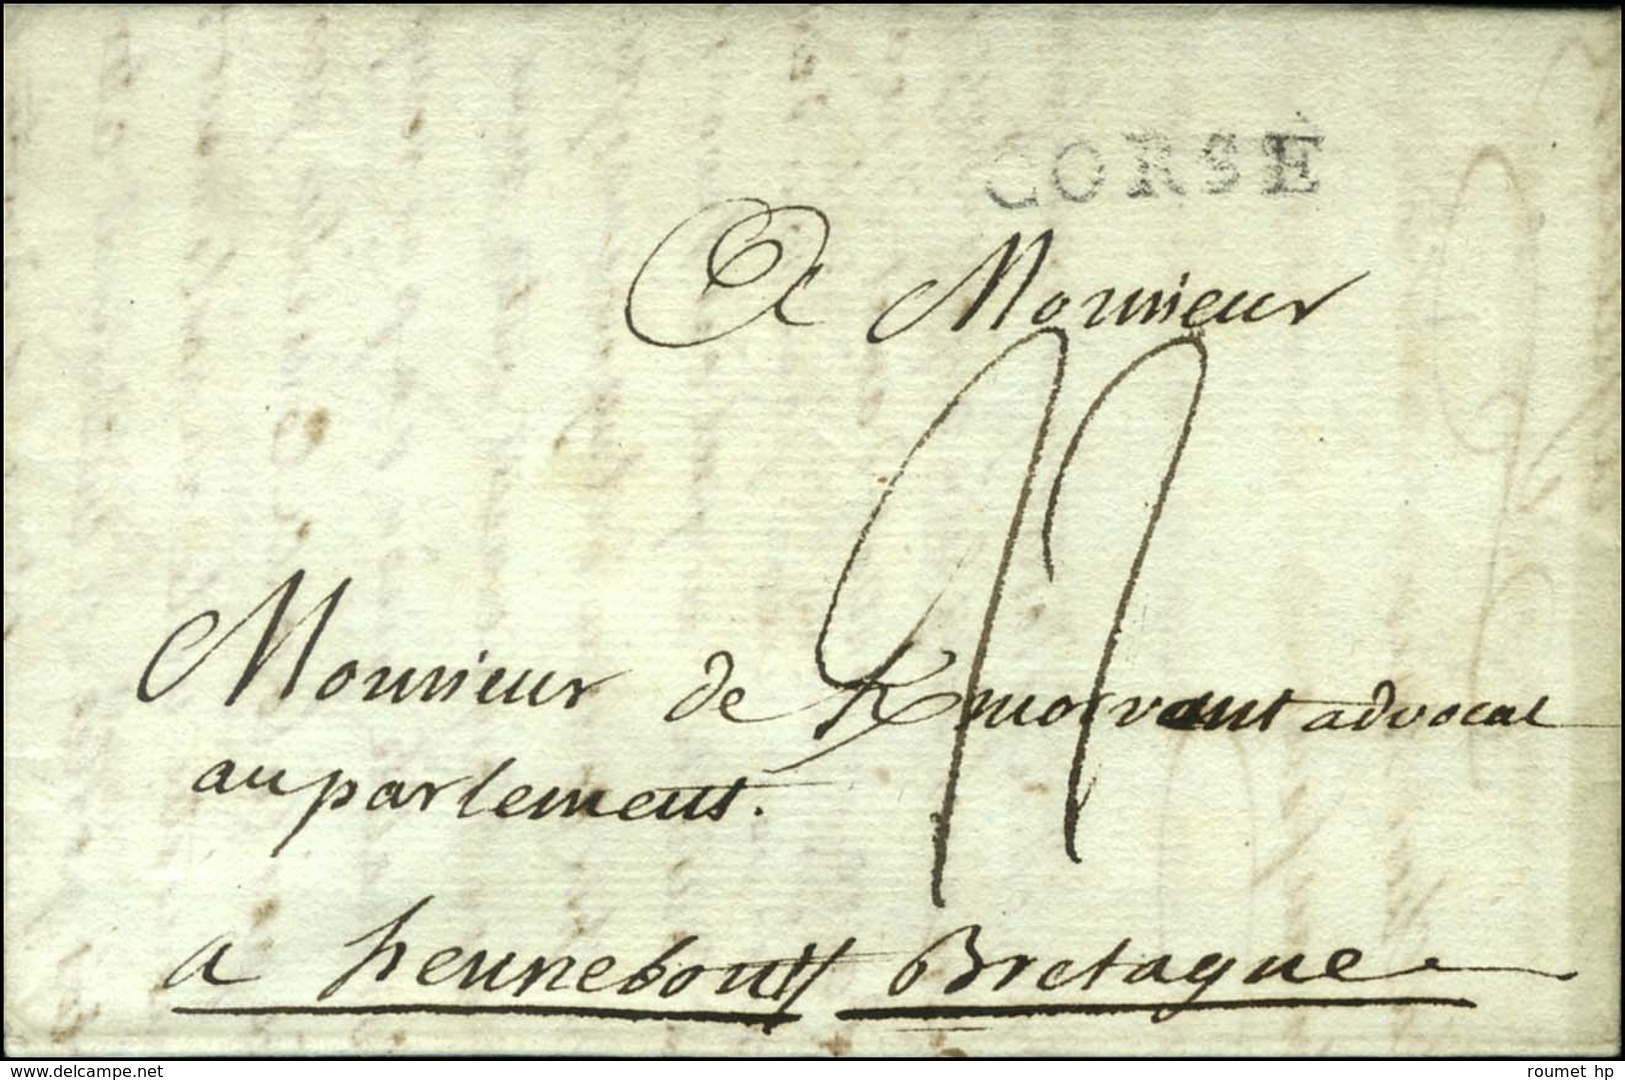 CORSE
A Monsieur
22
Monsieur de Kmorvant advocat
au parlement.
a hennebont Bretagne
delcampe.net
roumet_hp